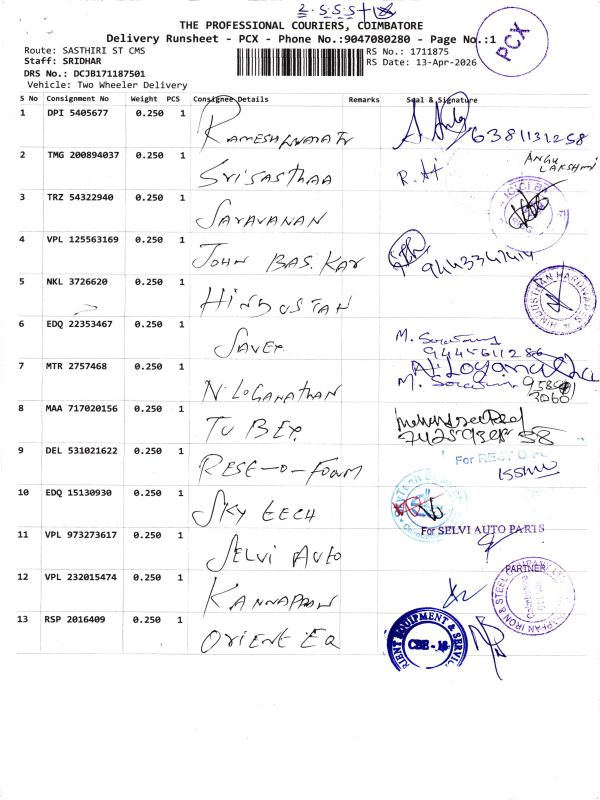 2.5.5.5+18
THE PROFESSIONAL COURIERS, COIMBATORE
Delivery Runsheet - PCX - Phone No.:9047080280 - Page No.:1
PCX
Route: SASTHIRI ST CMS
RS No.: 1711875
Staff: SRIDHAR
RS Date: 13-Apr-2026
DRS No.: DCJB171187501
Vehicle: Two Wheeler Delivery
S No Consignment No Weight PCS Consignee Details Remarks Seal & Signature
1 DPI 5405677 0.250 1 6381131258
ANGU LAKSHMI
2 TMG 200894037 0.250 1 SriSasthaa
3 TRZ 54322940 0.250 1 SARAVANAN
4 VPL 125563169 0.250 1 JOHN BASKAR
5 NKL 3726620 0.250 1 HINDUSTAN HINDUSTHAN HARDWARES
6 EDQ 22353467 0.250 1 SAVER M. 9445611286
7 MTR 2757468 0.250 1 N. LOGANATHAN N. Logana
M. 3060
8 MAA 717020156 0.250 1 TUBEX
9 DEL 531021622 0.250 1 RESE-O-FOAM For REST O
10 EDQ 15130930 0.250 1 SKY TECH
11 VPL 973273617 0.250 1 SELVI AUTO For SELVI AUTO PARTS
PARTNER
12 VPL 232015474 0.250 1 KANNAPPAN IRON & STEEL COMPANY
13 RSP 2016409 0.250 1 ORIENT EQ RIENT EQUIPMENT & SERVIC
CBE - 18